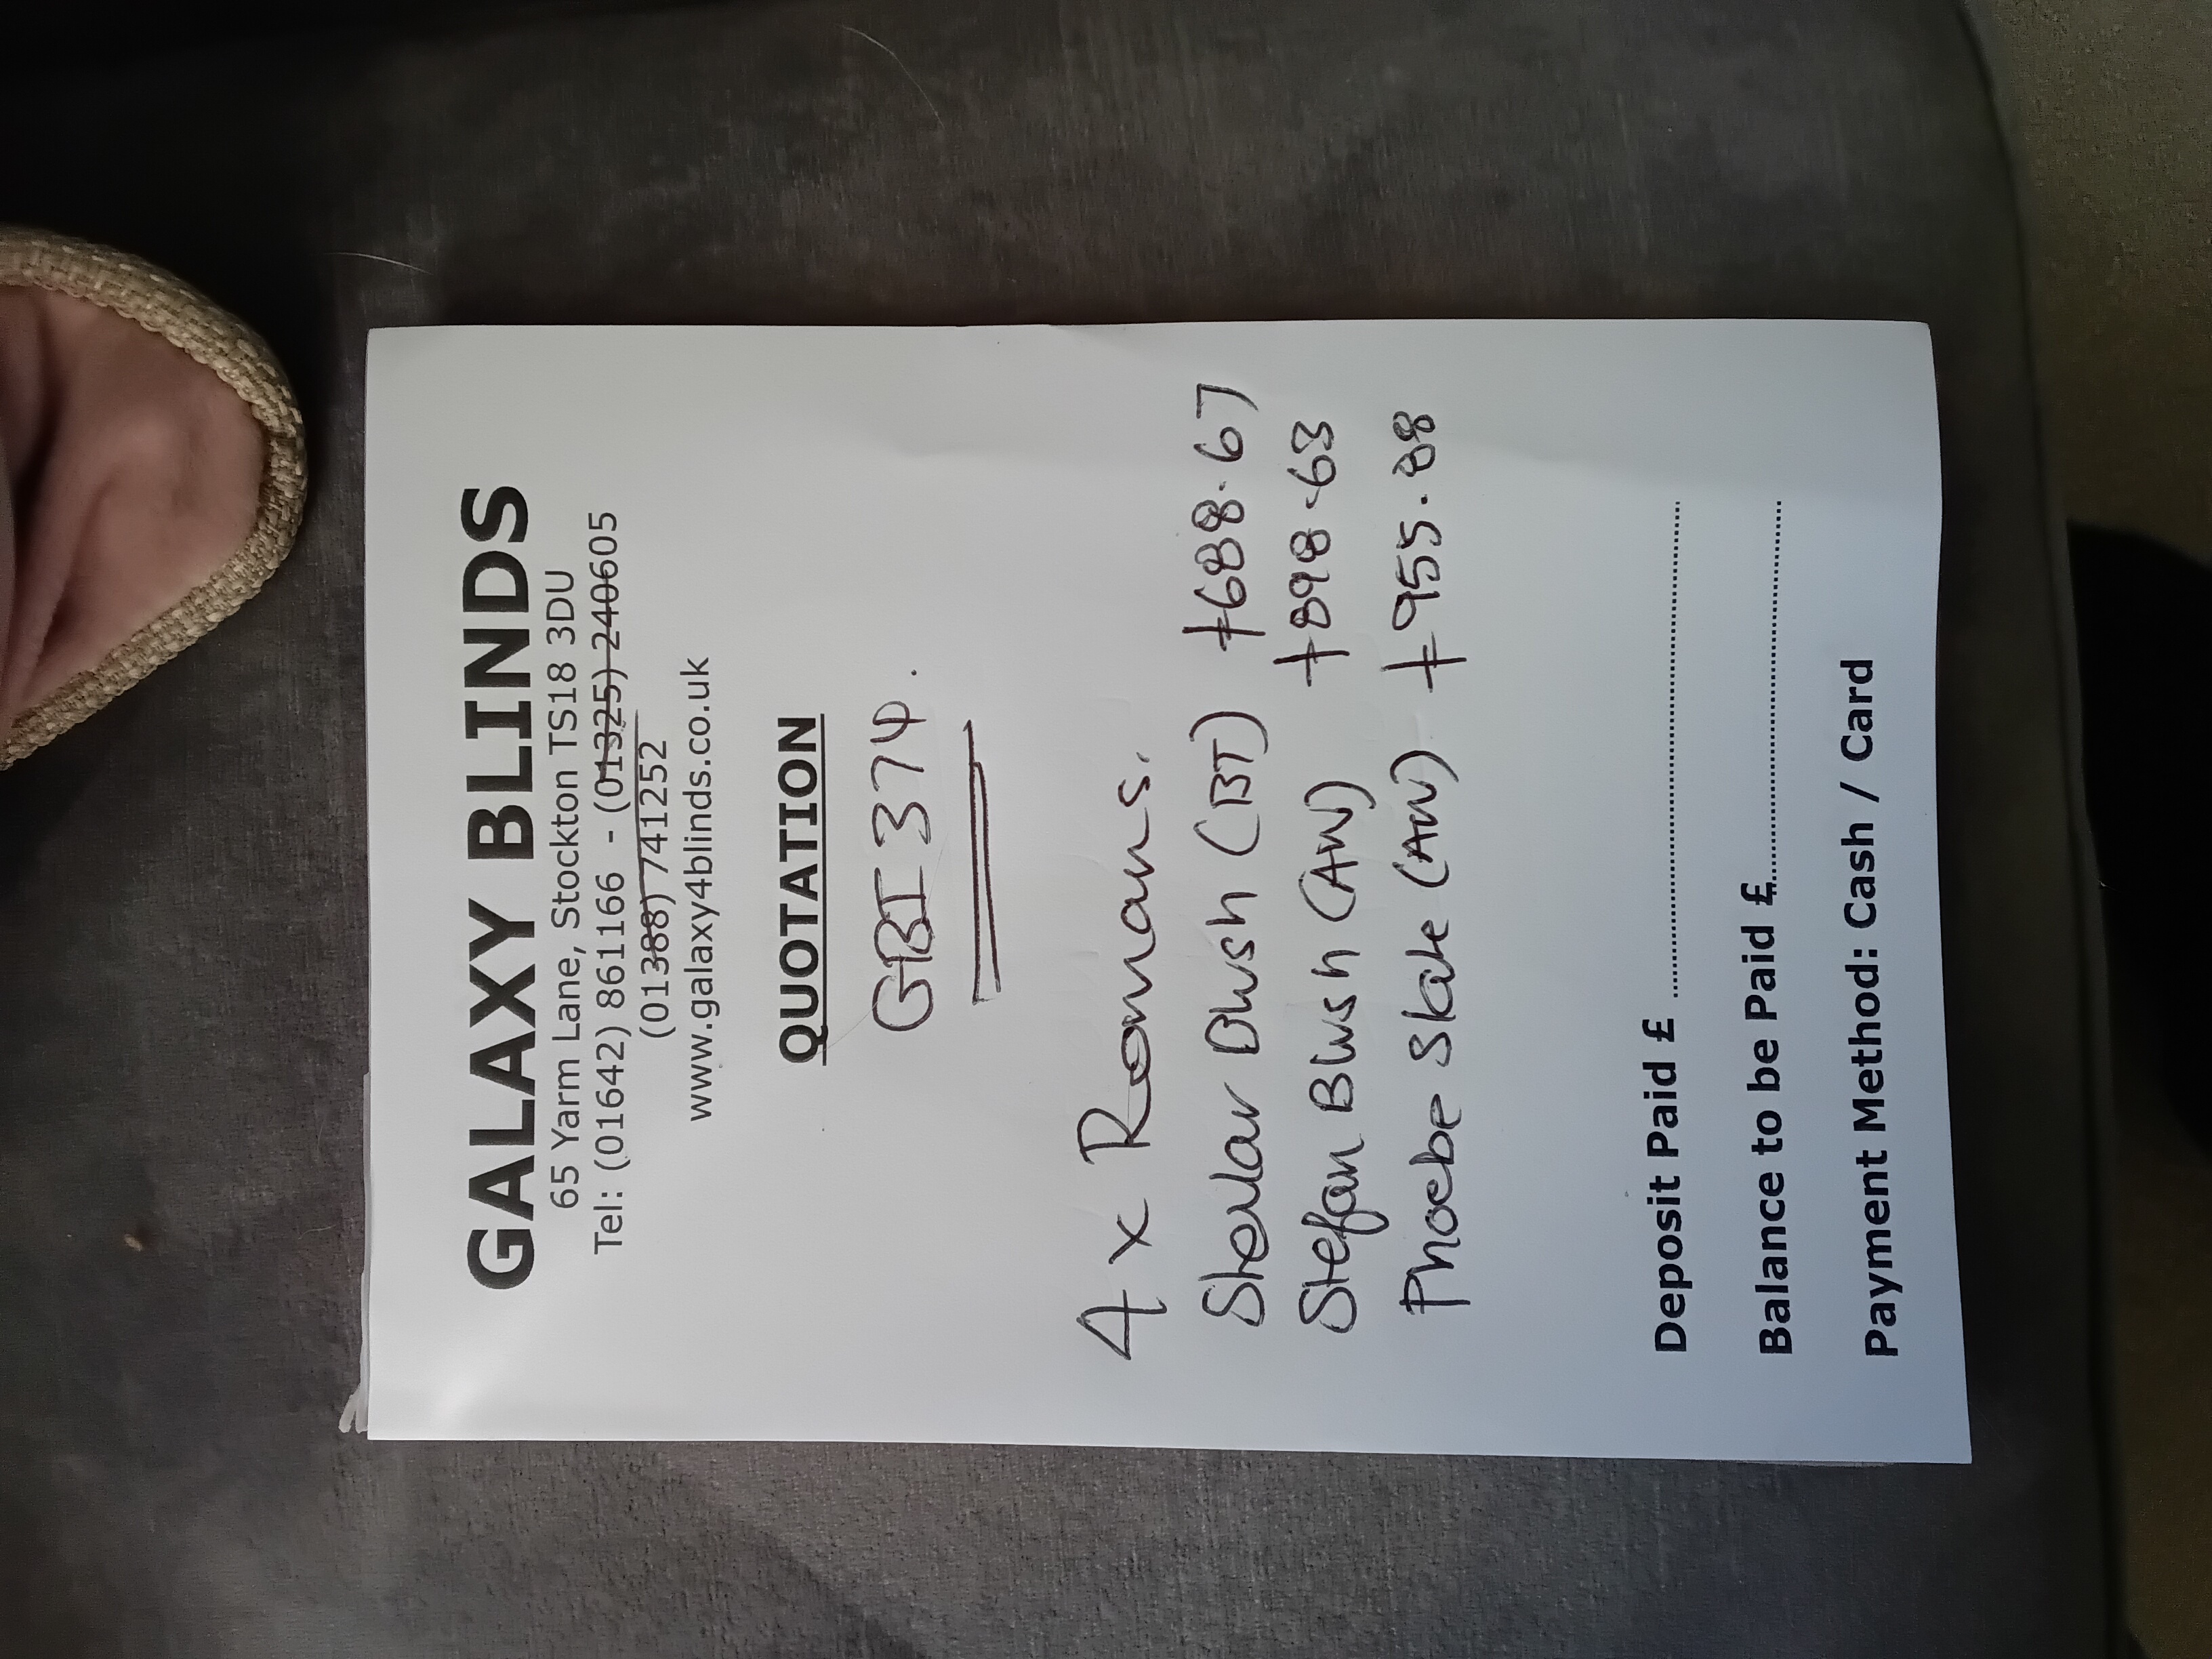 GALAXY BLINDS
65 Yarm Lane, Stockton TS18 3DU
Tel: (01642) 861166 - (01325) 240605
(01388) 741252
www.galaxy4blinds.co.uk
QUOTATION
GBI 374.
4 x Romans.
Blush (BT) £688.67
Stefan Blush (AW) £898.63
Phoebe Slate (AW) £955.88
Deposit Paid £ ........................................
Balance to be Paid £ ........................................
Payment Method: Cash / Card